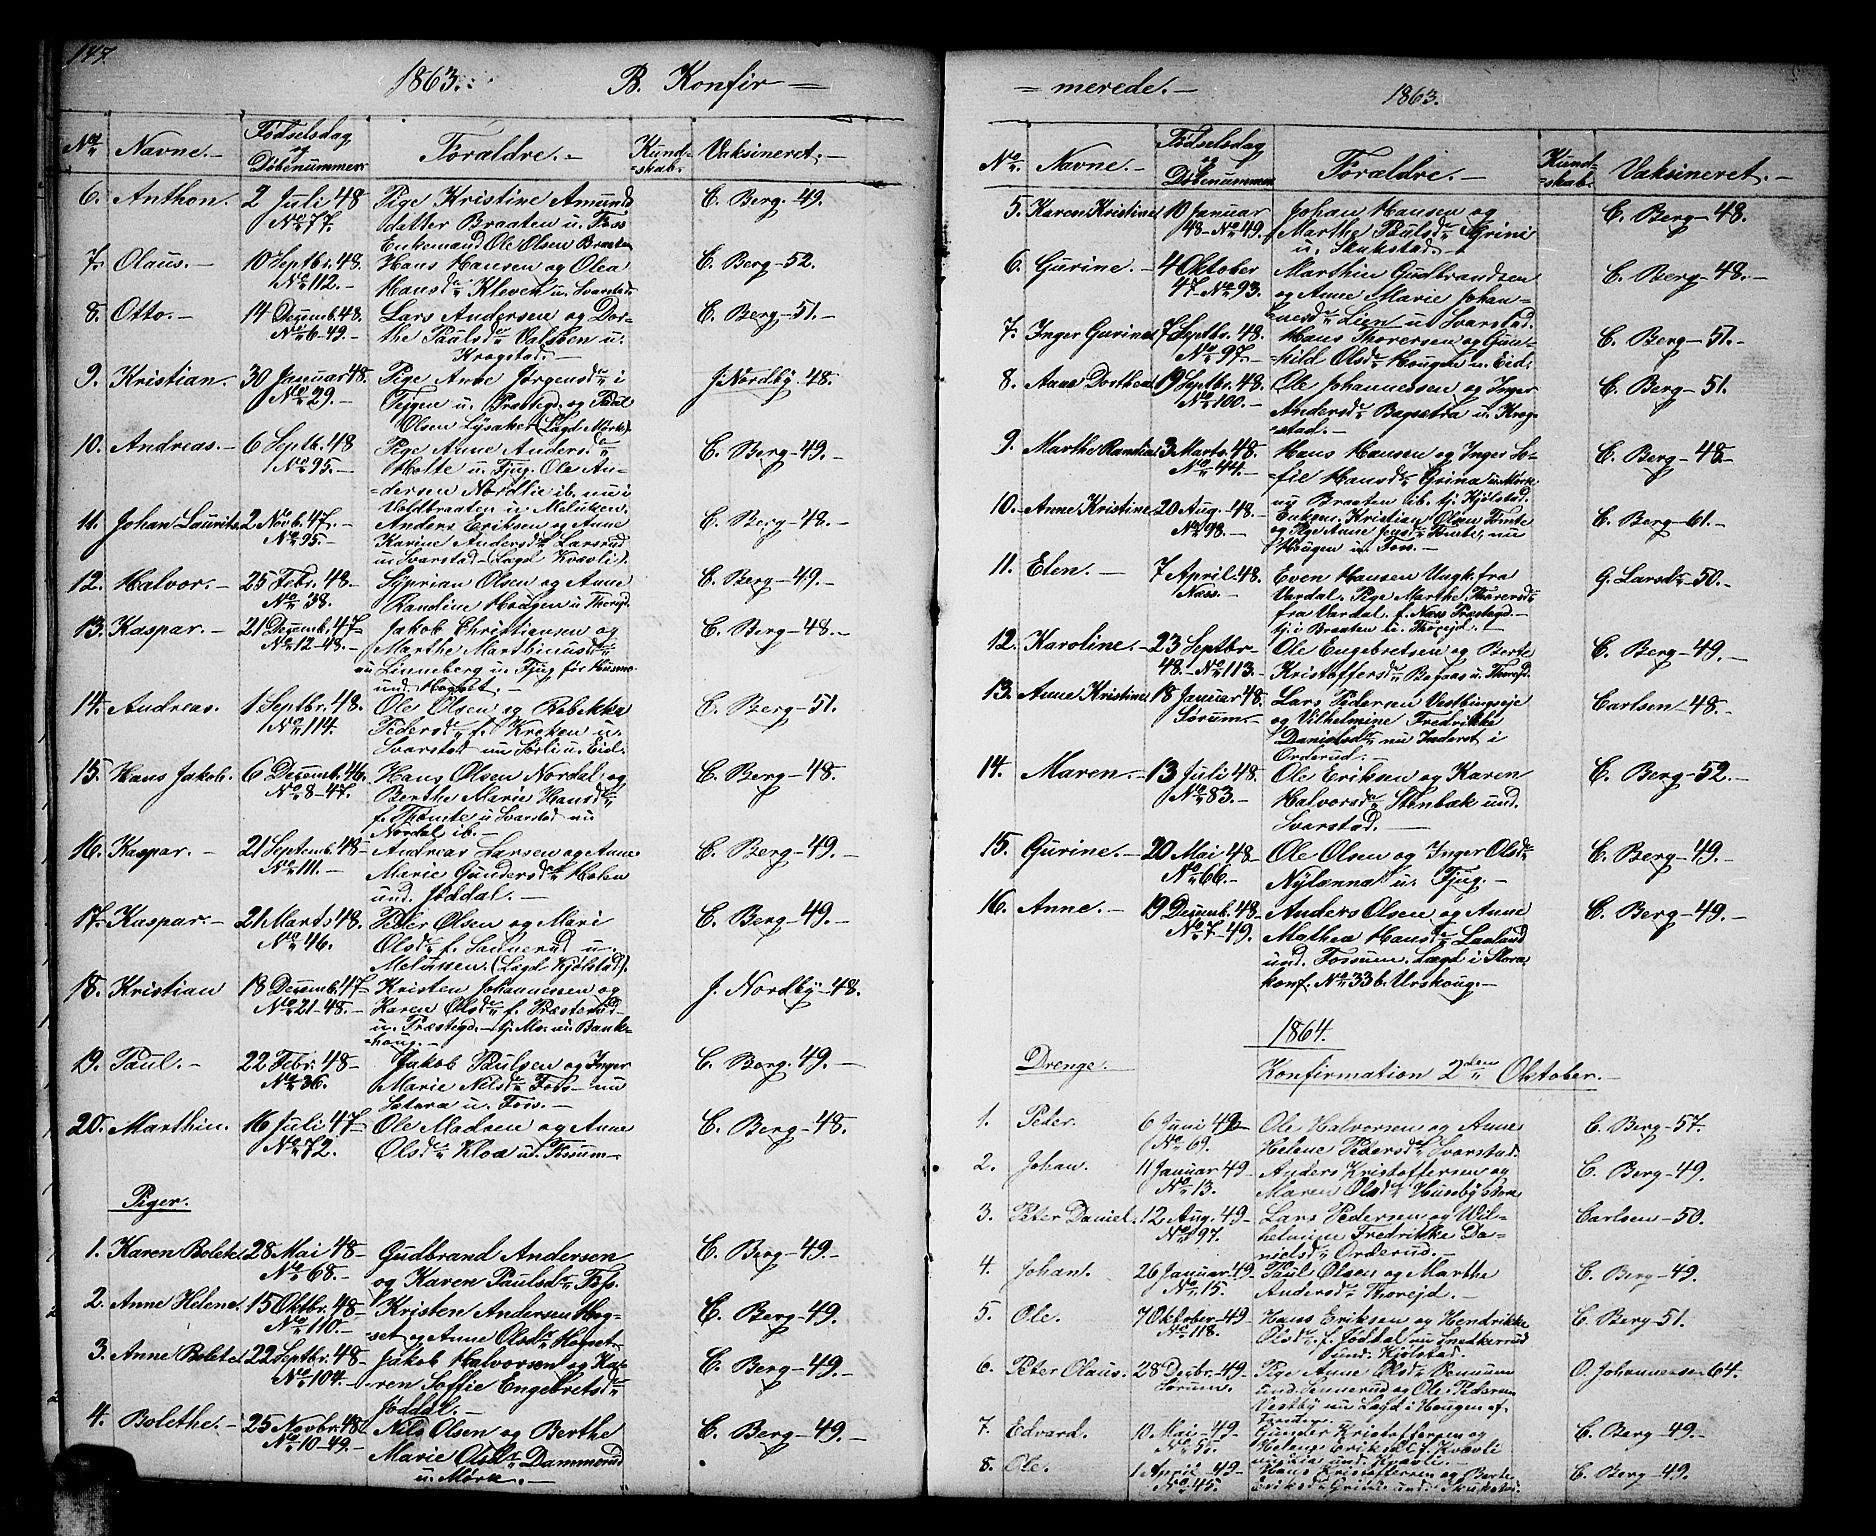 147.
1863. B. Konfir =
No Navne. Fødselsdag og Døbenummer. Forældre. Kundskab. Vaksineret.
6. Anthon. 2 Juli 48 Pige Kristine Amunds C. Berg. 49.
No 77. datter Braaten u. Foss
Enkemand Ole Olsen Braaten
7. Olaus. 10 Septbr. 48. Hans Hansen og Olea C. Berg-52.
No 112. Hansdr Kleven u. Svarstad
8. Otto. 14 Decemb. 48. Lars Andersen og Dor- C. Berg-51.
No 6-49. the Paulsdr Valsben u.
Krogstad.
9. Kristian. 30 Januar 48. Pige Anne Jørgensdr i J. Nordby-48.
No 29. Tejgen u. Præstegd. og Paul
Olsen Lysaker (Lagd Mørk).
10. Andreas. 6 Septb. 48 Pige Anne Andersdr C. Berg-49.
No 95. Holte u. Fjug. Ole An-
dersen Nordlie ib. nu i
Voldbraaten u. Melussen.
11. Johan Laurits 2 Novb. 47. Anders Eriksen og Anne C. Berg-48.
No 95. Karine Andersdr Larsrud
u. Svarstad (Lagd Kvævli).
12. Halvor. 25 Febr. 48. Syprian Olsen og Anne C. Berg-49.
No 38. Randine Hougen u Thorejd.
13. Kaspar. 21 Decemb. 47 Jakob Christiansen og C. Berg-48.
No 12-48. Marthe Marthinusdr
Linneberg u. Fjug før Husmd
und. Hogset.
14. Andreas. 1 Septbr. 48. Ole Olsen og Rebekka C. Berg-51.
No 114. Pedersdr f. Kreken u.
Svarstad nu Sorli u. Eid.
15. Hans Jakob. 6 Decemb. 46. Hans Olsen Nordal og C. Berg-48.
No 8-47. Berthe Marie Hansdr
f. Thomte u Svarstad nu
Nordal ib.
16. Kaspar. 21 Septemb. 48 Andreas Larsen og Anne C. Berg-49.
No 111. Marie Gundersdr Holen
und. Joddal.
17. Kaspar. 21 Marts 48. Peder Olsen og Mari C. Berg-49.
No 46. Olsdr f. Sannerud u.
Melussen. (Lagd Kjølstad).
18. Kristian 18 Decemb. 47 Kristen Johannesen og J. Nordby-48.
No 21-48. Karen Olsdr f. Præsterud
u. Præstegd. G. Ms. nu Bank-
houg.
19. Paul. 22 Febr. 48 Jakob Paulsen og Inger C. Berg. 49.
No 36. Marie Nilsdr Foss nu
Sætera u. Foss.
20. Marthin. 16 Juli 47 Ole Madsen og Anne C. Berg-48.
No 72. Olsdr Kloa u. Fossum
Piger.
1. Karen Bolette 28 Mai 48 Gudbrand Andersen C. Berg-49.
No 68. og Karen Paulsdr Foss.
2. Anne Helene. 15 Oktbr. 48 Kristen Andersen Hog- C. Berg-49.
No 110. set og Anne Olsdr Hogset
3. Anne Bolete 22 Septbr. 48 Jakob Halvorsen og Ka- C. Berg-49.
No 104. ren Soffie Engebretsdr
Joddal.
4. Bolethe. 25 Novbr. 48 Nils Olsen og Berthe C. Berg-49.
No 10-49. Marie Olsdr Dammerud
u. Mørk.
= merede. 1863.
No. Navne. Fødselsdag og Døbenummer Forældre. Kundskab. Vaksineret.
5. Karen Kristine 10 Januar Johan Hansen og C. Berg-48.
48-No 49. Marthe Paulsdr Grini
u. Skukstad
6. Gurine. 4 Oktober Marthin Gudbrandsen C. Berg-48.
47-No 93. og Anne Marie Johan-
nesdr Lien u Svarstad.
7. Inger Gurine 7 Septbr. 48. Hans Thoresen og Gun- C. Berg-51.
No 97. hild Olsdr Hougen u. Eid.
8. Anne Dorthea 19 Septbr. 48. Ole Johannessen og Inger C. Berg-51.
No 100. Andersdr Bagsætra u. Krog-
stad.
9. Marthe Randine 3 Marts 48. Hans Hansen og Inger So- C. Berg-48
No 44. fie Hansdr Grina u. Mørk
nu Braaten ib. tj. Kjølstad.
10. Anne Kristine 20 Aug. 48. Enkem. Kristian Olsen Tomte C. Berg-61.
No 98. og Pige Anne Jensdr Tomte, nu
Hougen u. Foss.
11. Elen. 7 April. 48. Even Hansen Ungk. fra G. Larsdr-50.
Næs. Vardal. Pige Marthe Thoresdr
fra Vardal. f. Næs Præstegd.
tj. i Braaten u. Thorejd.
12. Karoline. 23 Septbr Ole Engebretsen og Berte C. Berg-49.
48-No 113. Kristoffersdr Bogaas u. Thorejd.
13. Anne Kristine 18 Januar 48. Lars Pedersen Vestbingseje Carlsen-48.
Sørum. og Vilhelmine Fredrikke
Danielsdr nu Inderet i
Orderud.
14. Maren. 13 Juli 48. Ole Eriksen og Karen C. Berg-52.
No 83. Halvorsdr Stenbæk und.
Svarstad.
15. Gurine. 20 Mai 48 Ole Olsen og Inger Olsdr C. Berg-49.
No 66. Nylænna u. Fjug.
16. Anne. 19 Decemb. 48. Anders Olsen og Anne C. Berg-49.
No 7-49. Mathea Hansdr Laaland
und. Fossum. Lægd i Mara
konf. No 33 b. Urskoug.
1864.
Drenge. Konfirmation 2den Oktober.
1. Peder. 6 Juni 49 Ole Halvorsen og Anne C. Berg-57.
No 69. Helene Pedersdr Svarstad.
2. Johan. 11 Januar 49 Anders Kristoffersen og C. Berg-49.
No 13. Maren Olsdr Huseby
3. Peter Daniel. 12 Aug. 49 Lars Pedersen og Wil- Carlsen-50.
No 97. helmine Fredrikke Da-
nielsdr Orderud.
4. Johan. 26 Januar 49 Paul Olsen og Marthe C. Berg-49.
No 15. Andersdr Thorejd.
5. Ole. 7 Oktober-49 Hans Eriksen og Hendrikke C. Berg-51.
No 118. Olsdr f. Joddal nu Snedkerrud
und. Kjølstad.
6. Peter Olaus. 28 Decbr. 49 Pige Anne Olsdr O. Johannesen 64.
Sørum. und. Sennerud og Ole Pedersen
Vestby nu Lagd i Hougen af
7. Edvard. 10 Mai-49 Gunder Kristoffersen og C. Berg-49.
Helene Eriksdr f. Kvævli
und. Kvævli.
8. Ole. 1 April-49 Hans Kristoffersen og Berte C. Berg-49.
No 45. Eriksdr Grini und. Skukstad